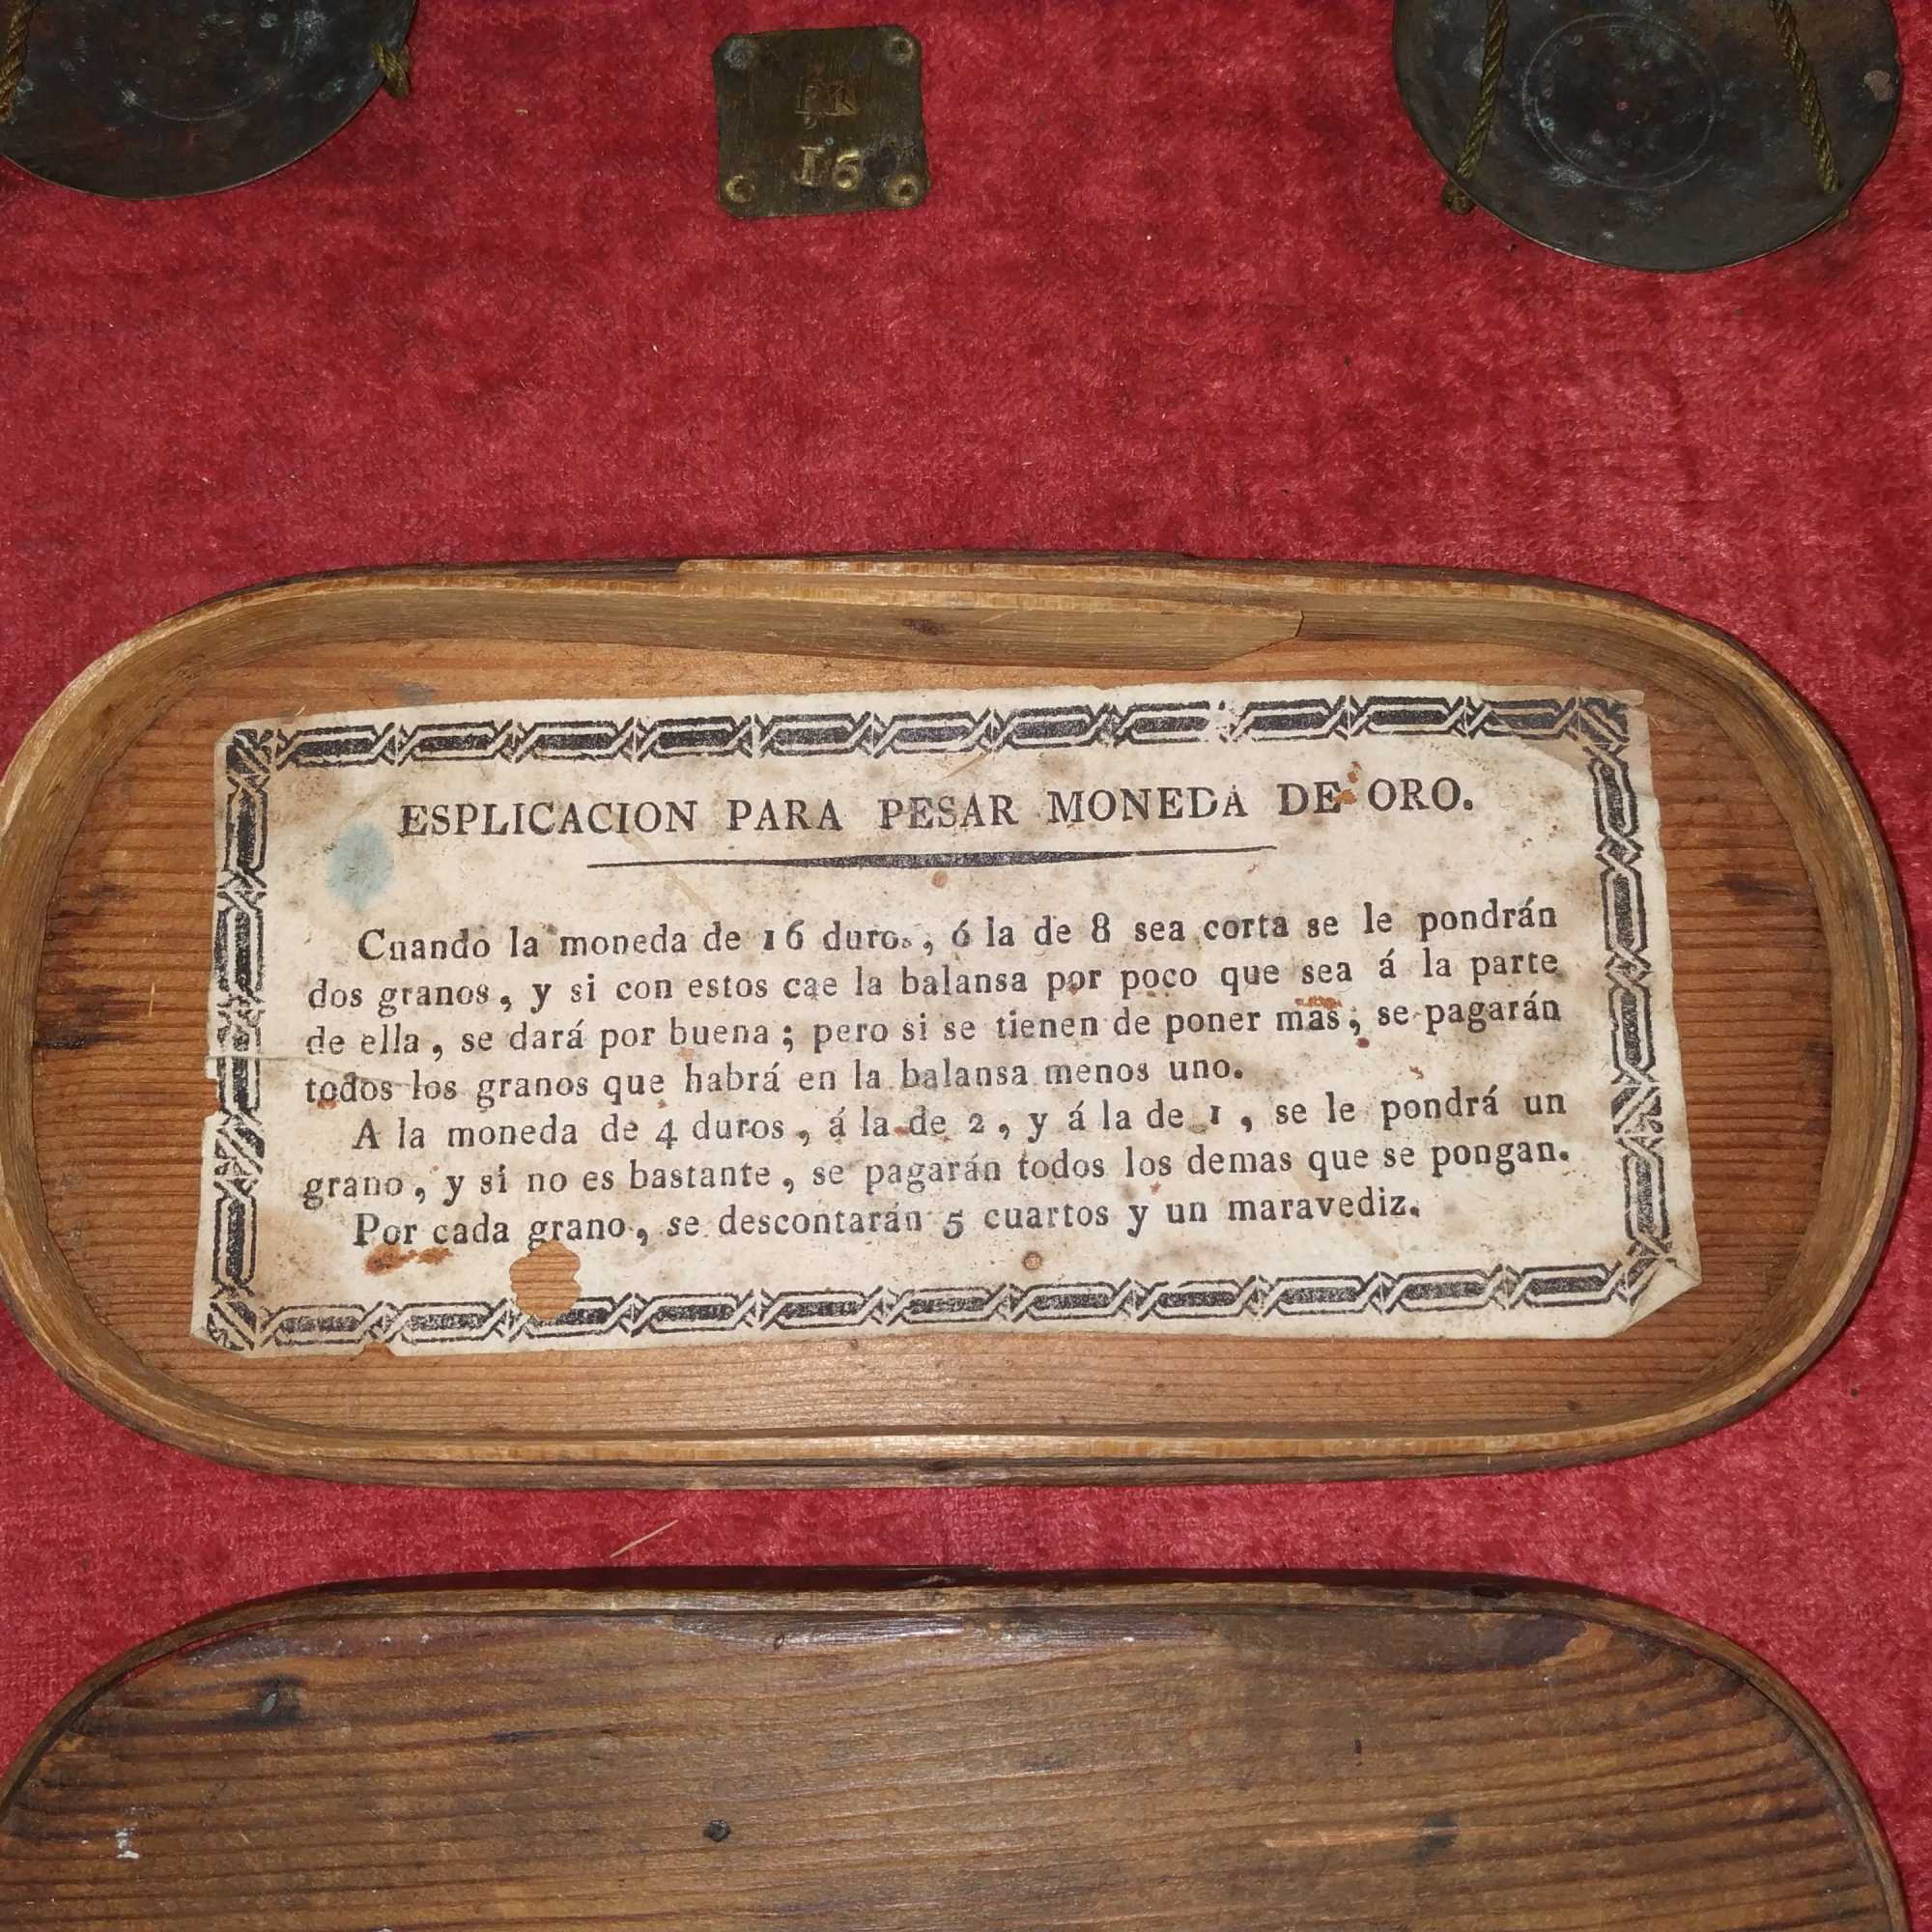 16
ESPLICACION PARA PESAR MONEDA DE ORO.
Cuando la moneda de 16 duros, ó la de 8 sea corta se le pondrán
dos granos, y si con estos cae la balansa por poco que sea á la parte
de ella, se dará por buena; pero si se tienen de poner mas, se pagarán
todos los granos que habrá en la balansa menos uno.
A la moneda de 4 duros, á la de 2, y á la de 1, se le pondrá un
grano, y si no es bastante, se pagarán todos los demas que se pongan.
Por cada grano, se descontarán 5 cuartos y un maravediz.